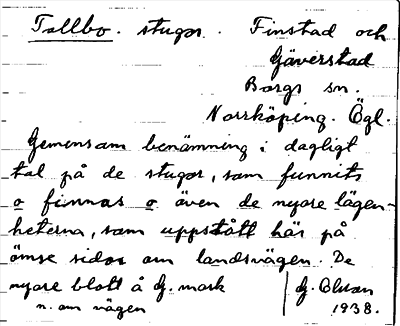 Tallbo. stugor. Finstad och
Gäverstad
Borgs sn.
Norrköping. Ögl.
Gemensam benämning i dagligt
tal på de stugor, som funnits
o finnas o även de nyare lägen-
heterna, som uppstått här på
ömse sidor om landsvägen. De
nyare blott å G. mark
n. om vägen
G.
1938.